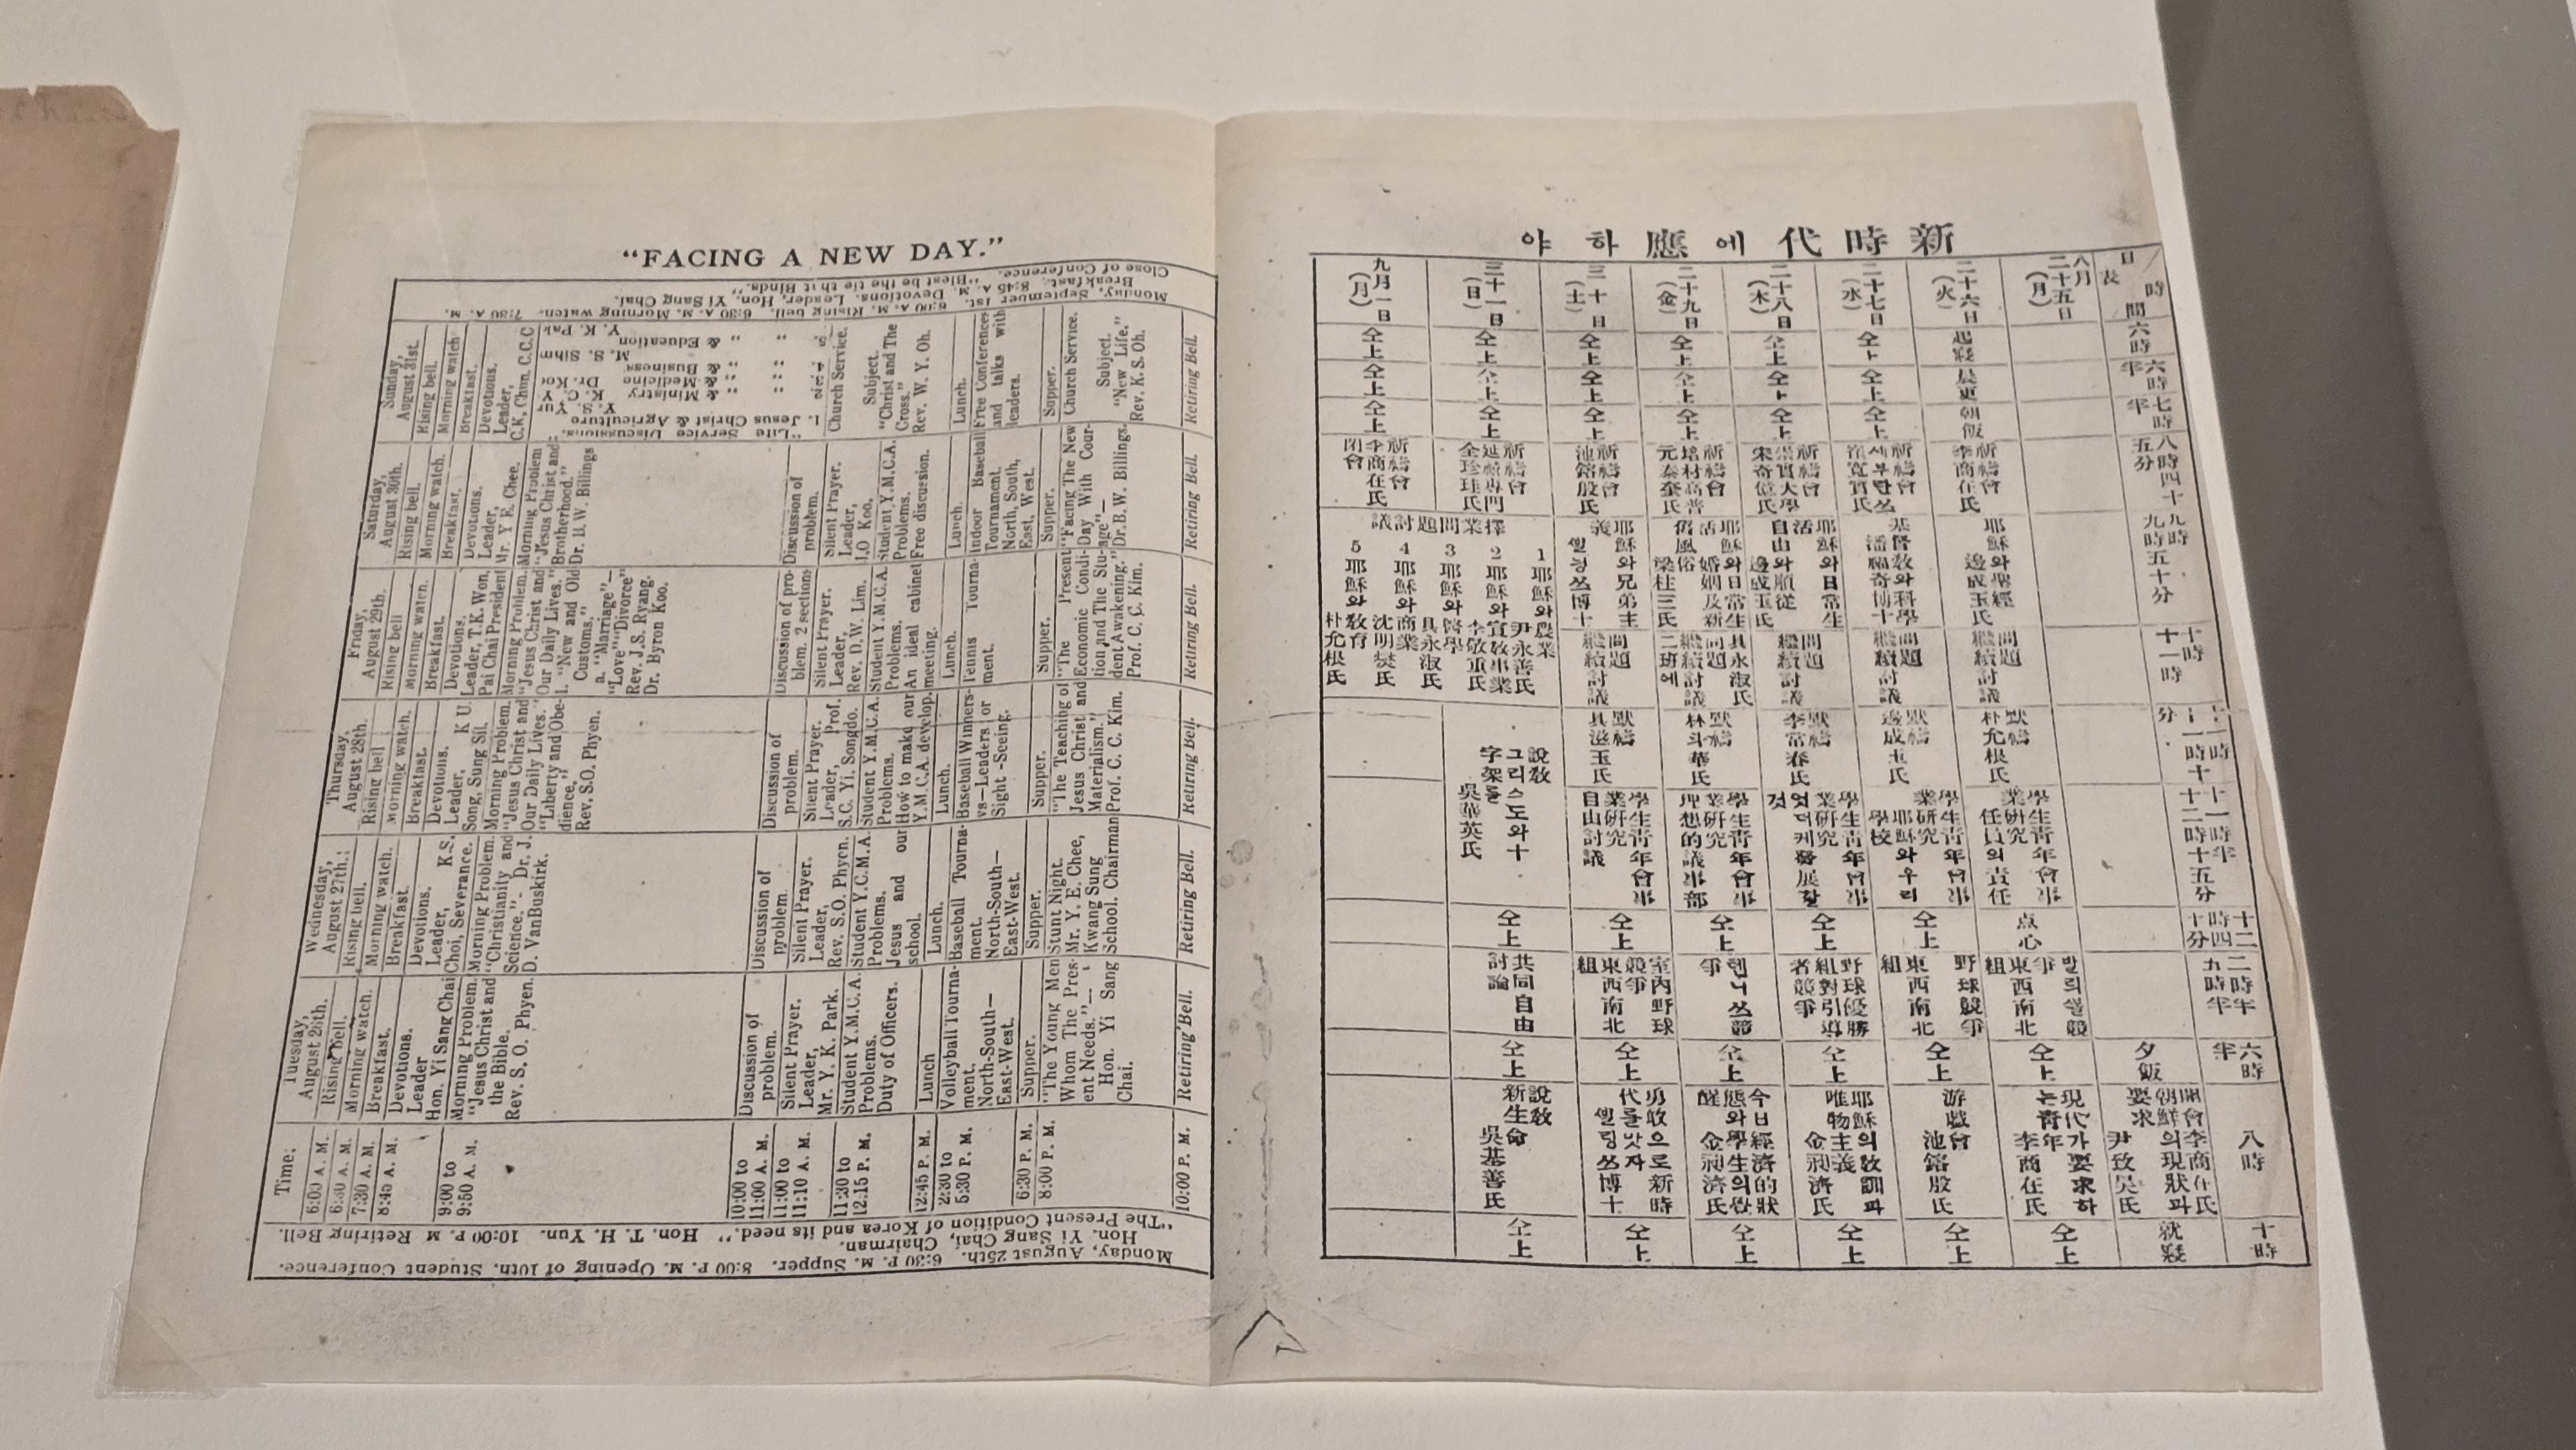 "FACING A NEW DAY."
Monday, August 25th. 6:30 P. M. Supper. 8:00 P. M. Opening of 10th. Student Conference.
Hon. Yi Sang Chai, Chairman.
"The Present Condition of Korea and its need." Hon. T. H. Yun. 10:00 P. M Retiring Bell.
Time:
6:00 A. M.
6:30 A. M.
7:30 A. M.
8:45 A. M.
9:00 to
9:50 A. M.
10:00 to
11:00 A. M.
11:00 to
11:10 A. M.
11:30 to
12:15 P. M.
12:45 P. M.
2:30 to
5:30 P. M.
6:30 P. M.
8:00 P. M.
10:00 P. M.
Tuesday,
August 26th.
Rising bell.
Morning watch.
Breakfast.
Devotions.
Leader
Hon. Yi Sang Chai
Morning Problem.
"Jesus Christ and
the Bible."
Rev. S. O. Phyen.
Discussion of
problem.
Silent Prayer.
Leader,
Mr. Y. K. Park.
Student Y.M.C.A.
Problems.
Duty of Officers.
Lunch
Volleyball Tourna-
ment.
North-South—
East-West.
Supper.
"The Young Men
Whom The Pres-
ent Needs."—
Hon. Yi Sang
Chai.
Retiring Bell.
Wednesday,
August 27th.
Rising bell.
Morning watch.
Breakfast.
Devotions.
Leader, K.S.
Choi, Severance.
Morning Problem.
"Christianity and
Science."- Dr. J.
D. VanBuskirk.
Discussion of
problem.
Silent Prayer.
Leader,
Rev. S.O. Phyen.
Student Y.C.M.A.
Problems.
Jesus and our
school.
Lunch.
Baseball Tourna-
ment.
North-South—
East-West.
Supper.
Stunt Night.
Mr. Y. E. Chee,
Kwang Sung
School. Chairman
Retiring Bell.
Thursday,
August 28th.
Rising bell
Morning watch.
Breakfast.
Devotions.
Leader, K U.
Song, Sung Sil.
Morning Problem.
"Jesus Christ and
Our Daily Lives."
"Liberty and Obe-
dience,"
Rev. S.O. Phyen.
Discussion of
problem.
Silent Prayer.
Leader, Prof.
S.C. Yi, Songdo.
Student Y.M.C.A.
Problems.
How to make our
Y.M.C.A. develop.
Lunch.
Baseball Winners-
vs—Leaders or
Sight-Seeing.
Supper.
"The Teaching of
Jesus Christ and
Materialism."
Prof. C. C. Kim.
Retiring Bell.
Friday,
August 29th.
Rising bell
Morning watch.
Breakfast.
Devotions.
Leader, T.K. Won,
Pai Chai President
Morning Problem.
"Jesus Christ and
Our Daily Lives."
1. "New and Old
Customs."
a. "Marriage"—
"Love" "Divorce"
Rev. J.S. Ryang.
Dr. Byron Koo.
Discussion of pro-
blem. 2 sections
Silent Prayer.
Leader,
Rev. D.W. Lim.
Student Y.M.C.A.
Problems.
An ideal cabinet
meeting.
Lunch.
Tennis Tourna-
ment.
Supper.
"The Present
Economic Condi-
tion and The Stu-
dent Awakening."
Prof. C. C. Kim.
Retiring Bell.
Saturday,
August 30th.
Rising bell.
Morning watch.
Breakfast.
Devotions.
Leader,
Mr. Y E. Chee.
Morning Problem
"Jesus Christ and
Brotherhood."
Dr. B. W. Billings
Discussion of
problem.
Silent Prayer.
Leader,
J.O Koo.
Student Y.M.C.A.
Problems.
Free discussion.
Lunch.
Indoor Baseball
Tournament.
North, South,
East, West.
Supper.
"Facing The New
Day With Cour-
age"—
Dr.B.W. Billings.
Retiring Bell.
Sunday,
August 31st.
Rising bell.
Morning watch
Breakfast.
Devotions.
Leader,
C.K, Chun, C.C.C
"Life Service Discussions."
1. Jesus Christ & Agriculture
Y. S. Yun
& Ministry K. C. Y
& Medicine Dr. Koo
& Business
M. S. Sihm
& Education
Y. K. Pak
Church Service.
Subject.
"Christ and The
Cross."
Rev. W. Y. Oh.
Lunch.
Free Conferences
and talks with
leaders.
Supper.
Church Service.
Subject.
"New Life."
Rev. K. S. Oh.
Retiring Bell.
Monday, September 1st.
6:00 A. M. Rising bell. 6:30 A. M. Morning watch. 7:30 A. M.
Breakfast. 8:45 A. M. Devotions. Leader, Hon. Yi Sang Chai.
Close of Conference. "Blest be the tie th t Binds."
新時代에應하야
日
時
表
間
六時
六時半
七時半
八時四十五分
九時
九時五十分
十時
十一時
十一時
十一時十分
十一時半
十二時十五分
十二時四十分
二時半
五時半
六時半
八時
十時
八月二十五日(月)
夕飯
開會 李商在氏
朝鮮의現狀과
要求
尹致昊氏
就寢
二十六日(火)
起寢
晨更
朝飯
祈禱會
李商在氏
耶穌와聖經
邊成玉氏
問題
繼續討議
默禱
朴允根氏
學生靑年會事
業硏究
任員의責任
点心
발리쏠競
爭
東西南北
組
仝上
現代가要求하
는靑年
李商在氏
仝上
二十七日(水)
仝上
仝上
仝上
祈禱會
세부란쓰
基督敎와科學
潘福奇博士
問題
繼續討議
默禱
邊成玉氏
學生靑年會事
業硏究
耶穌와우리
學校
仝上
野球競爭
東西南北
組
仝上
游戱會
池鎔殷氏
仝上
二十八日(木)
仝上
仝上
仝上
祈禱會
崇實大學
宋奇億氏
耶穌와日常生
活
自由와順從
邊成玉氏
問題
繼續討議
默禱
李常春氏
學生靑年會事
業硏究
엇더케發展할
것
仝上
野球優勝
組對引導
者競爭
仝上
耶穌의敎訓과
唯物主義
金昶濟氏
仝上
二十九日(金)
仝上
仝上
仝上
祈禱會
培材高普
元泰奎氏
耶穌와日常生
活
婚姻及新
舊風俗
梁柱三氏
具永淑氏
問題
繼續討議
二班에
默禱
林斗華氏
學生靑年會事
業硏究
理想的議事部
仝上
텐니쓰競
爭
仝上
今日經濟的狀
態와學生의覺
醒
金昶濟氏
仝上
三十日(土)
仝上
仝上
仝上
祈禱會
池鎔殷氏
耶穌와兄弟主
義
삘링쓰博士
問題
繼續討議
默禱
具滋玉氏
學生靑年會事
業硏究
自由討議
仝上
室內野球
競爭
東西南北
組
仝上
勇敢으로新時
代를맛자
삘링쓰博士
仝上
三十一日(日)
仝上
仝上
仝上
祈禱會
延禧專門
金珍珪氏
擇業問題討議
1 耶穌와農業
尹永善氏
2 耶穌와宣敎事業
李敬重氏
3 耶穌와醫學
具永淑氏
4 耶穌와商業
沈明燮氏
5 耶穌와敎育
朴允根氏
說敎
그리스도와十
字架를
吳華英氏
仝上
共同自由
討論
仝上
說敎
新生命
吳基善氏
仝上
九月一日(月)
仝上
仝上
仝上
祈禱會
李商在氏
閉會